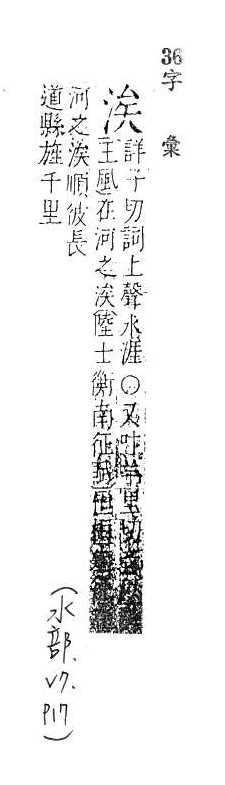 36字彙
涘
詳子切詞上聲水涯○又吐
王風在河之涘陸士衡南征
河之涘順彼長
道縣旌千里
（水部. V7. P17）